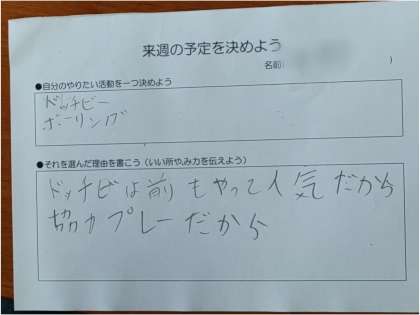 来週の予定を決めよう
名前(
)
●自分のやりたい活動を一つ決めよう
ドッチビー
ボーリング
●それを選んだ理由を書こう（いい所や、み力を伝えよう）
ドッチビは前もやって人気だから
協力プレーだから